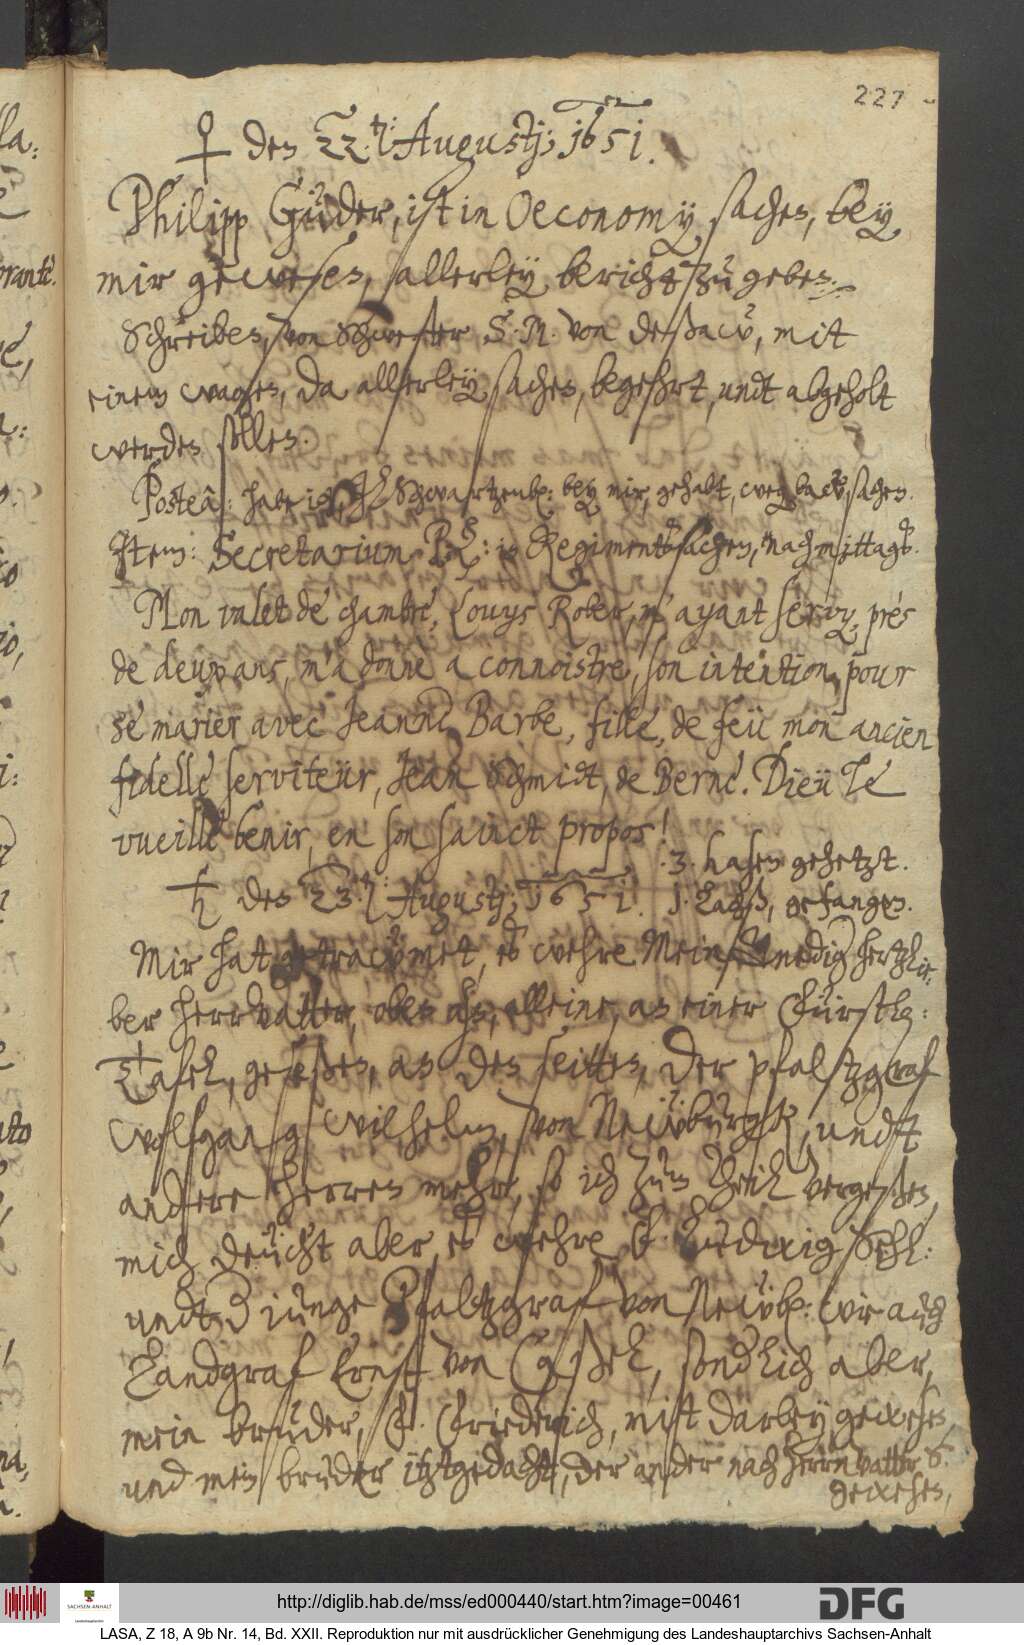 227
♀ den 22.ti: Augustj; 1651.
Philipp Güder, ist in Oeconomy sachen, bey
mir gewesen, allerley bericht zu geben.
Schreiben, von Schwester S. M. von Deßaw, mit
einem wagen, da allerley sachen, begehrt, undt abgeholt
werden sollen.
Posteâ: habe ich, Schwartzenb: bey mir, gehabt, weg. baw, sachen.
Item: Secretarium P. L: in Regimentßsachen, nachmittagß.
Mon valet de chambre, Louys Rober, m'ayant servy, prés
de deux ans, m'a donnè a connoistre, son intention, pour
se marier avec Jeanne Barbe, fille, de feü mon ancien
fidelle serviteür, Jean Schmidt, de Berne. Dieü le
vueille benir, en son sainct propos!
.3. hasen gehetzt.
♄ den 23.ti: Augustj; 1651. 1. Lachß, gefangen.
Mir hat getrawmet, eß wehre Mein Gnedig hertzlie-
ber herrvatter, oben an, alleine, an einer Fürstl:
Tafel, geseßen, an den seitten, der Pfaltzgraf
Wolfgang Wilhelm, von Newburgk, undt
andere herren mehr, so ich zum theil vergeßen,
mich deücht aber, eß wehre F. Ludwig Sehl:
undt d iunge Pfaltzgraf von Newb: wie auch
Landgraf Ernst von Caßel, sonderlich aber,
mein bruder, F. Friederich, mit darbey gewesen,
und mein bruder itztgedacht, der ander nach herrn vatter S.
gewesen,
http://diglib.hab.de/mss/ed000440/start.htm?image=00461
DFG
SACHSEN-ANHALT
LASA, Z 18, A 9b Nr. 14, Bd. XXII. Reproduktion nur mit ausdrücklicher Genehmigung des Landeshauptarchivs Sachsen-Anhalt